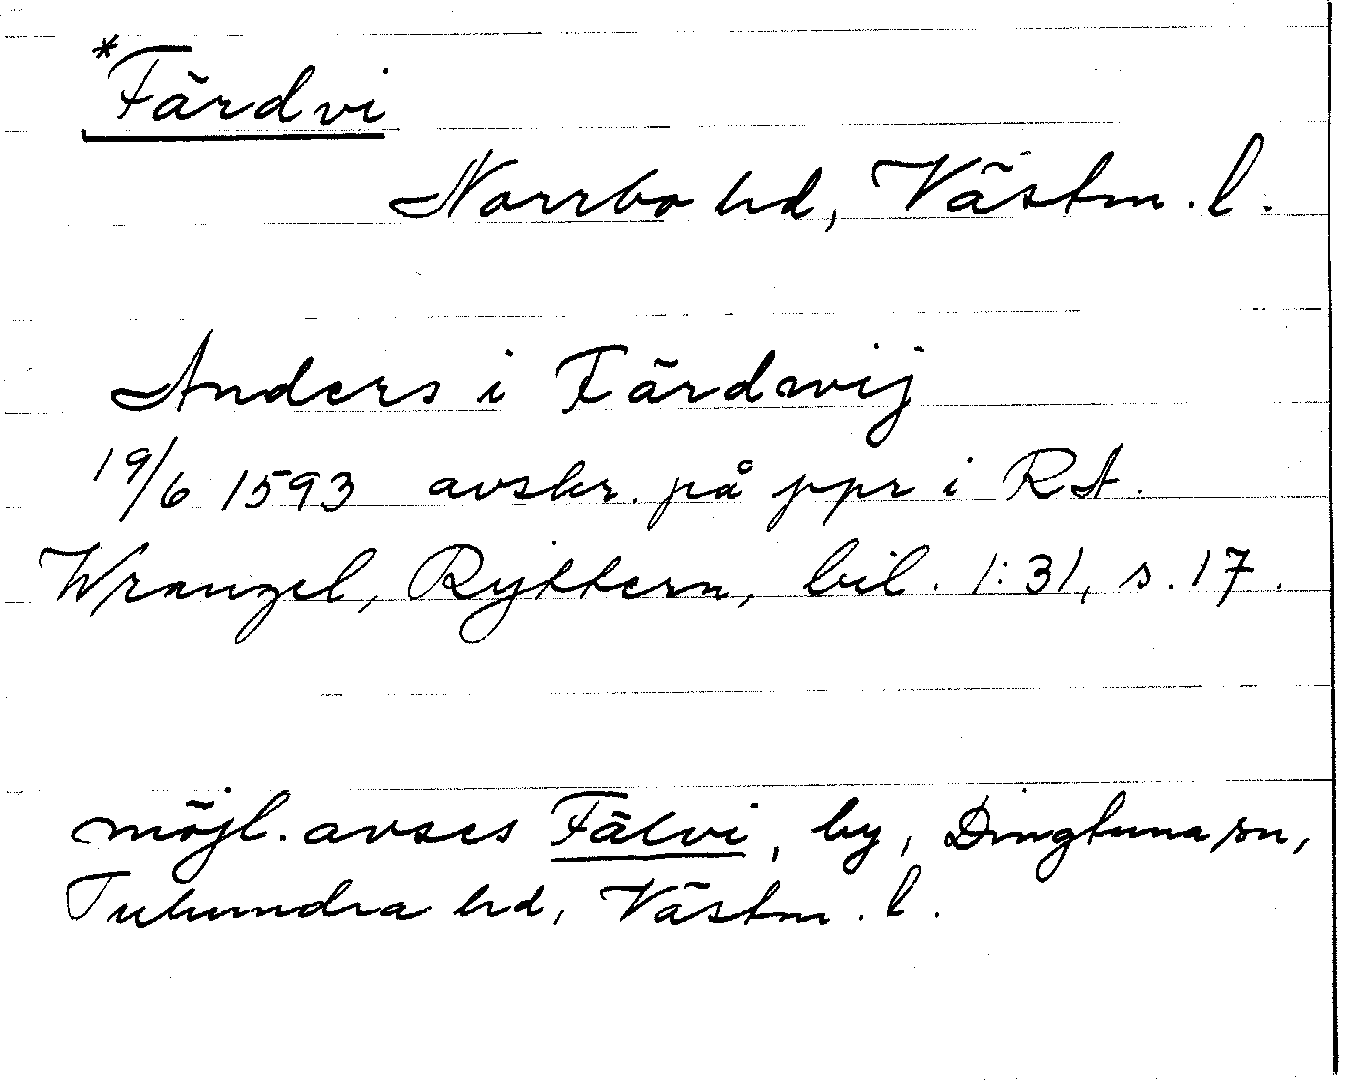 *Färdvi
Norrbo hd, Västm. l.
Anders i Färdwij
19/6 1593 avskr. på ppr i RA.
Wrangel, Ryttern, bil. 1:31, s. 17.
möjl. avses Fälvi, by, Dingtuna sn,
Tuhundra hd, Västm. l.